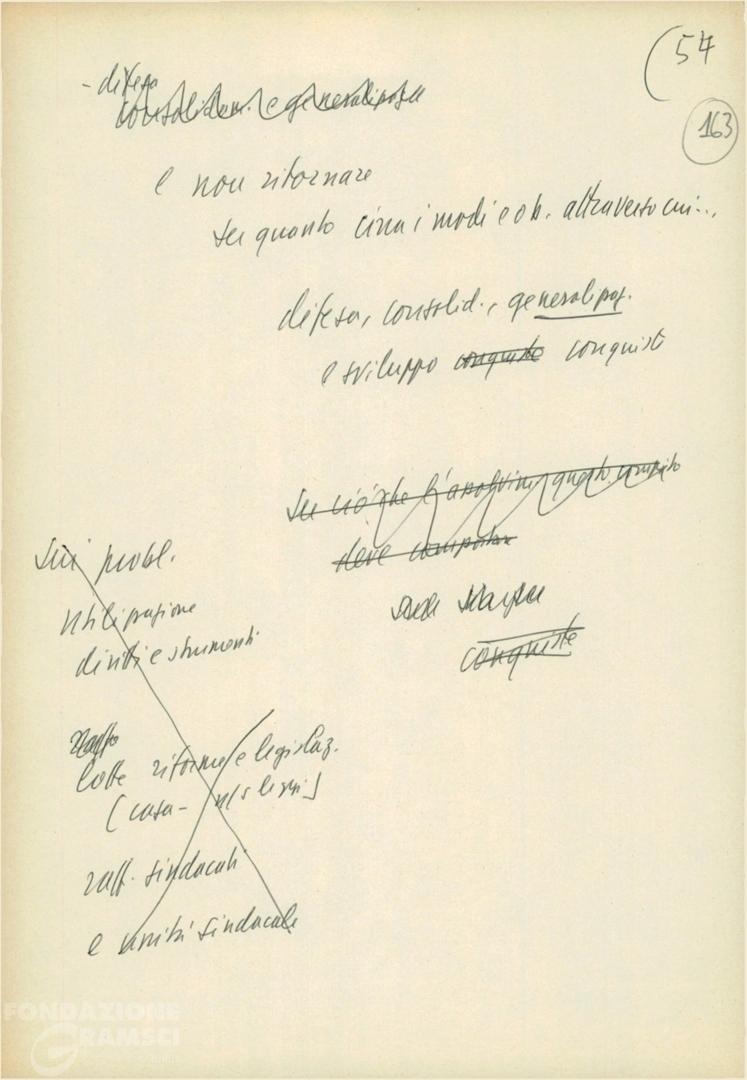 (54
163
- difesa
consolidam. e generalizzaz.
e non ritornare
su quanto circa i modi e ob. attraverso cui...
difesa, consolid., generalizzaz.
e sviluppo conquiste conquist
Su ciò che l'assolvim. questo compito
deve
conquiste
Sui probl.
utilizzazione
diritti e strumenti
lotte riforme e legislaz.
(casa-
raff. sindacati
e unità sindacale
FONDAZIONE
GRAMSCI